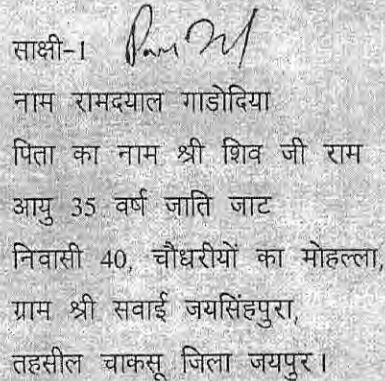 साक्षी-1
नाम रामदयाल गाडोदिया
पिता का नाम श्री शिव जी राम
आयु 35 वर्ष जाति जाट
निवासी 40, चौधरीयों का मोहल्ला,
ग्राम श्री सवाई जयसिंहपुरा,
तहसील चाकसू जिला जयपुर।